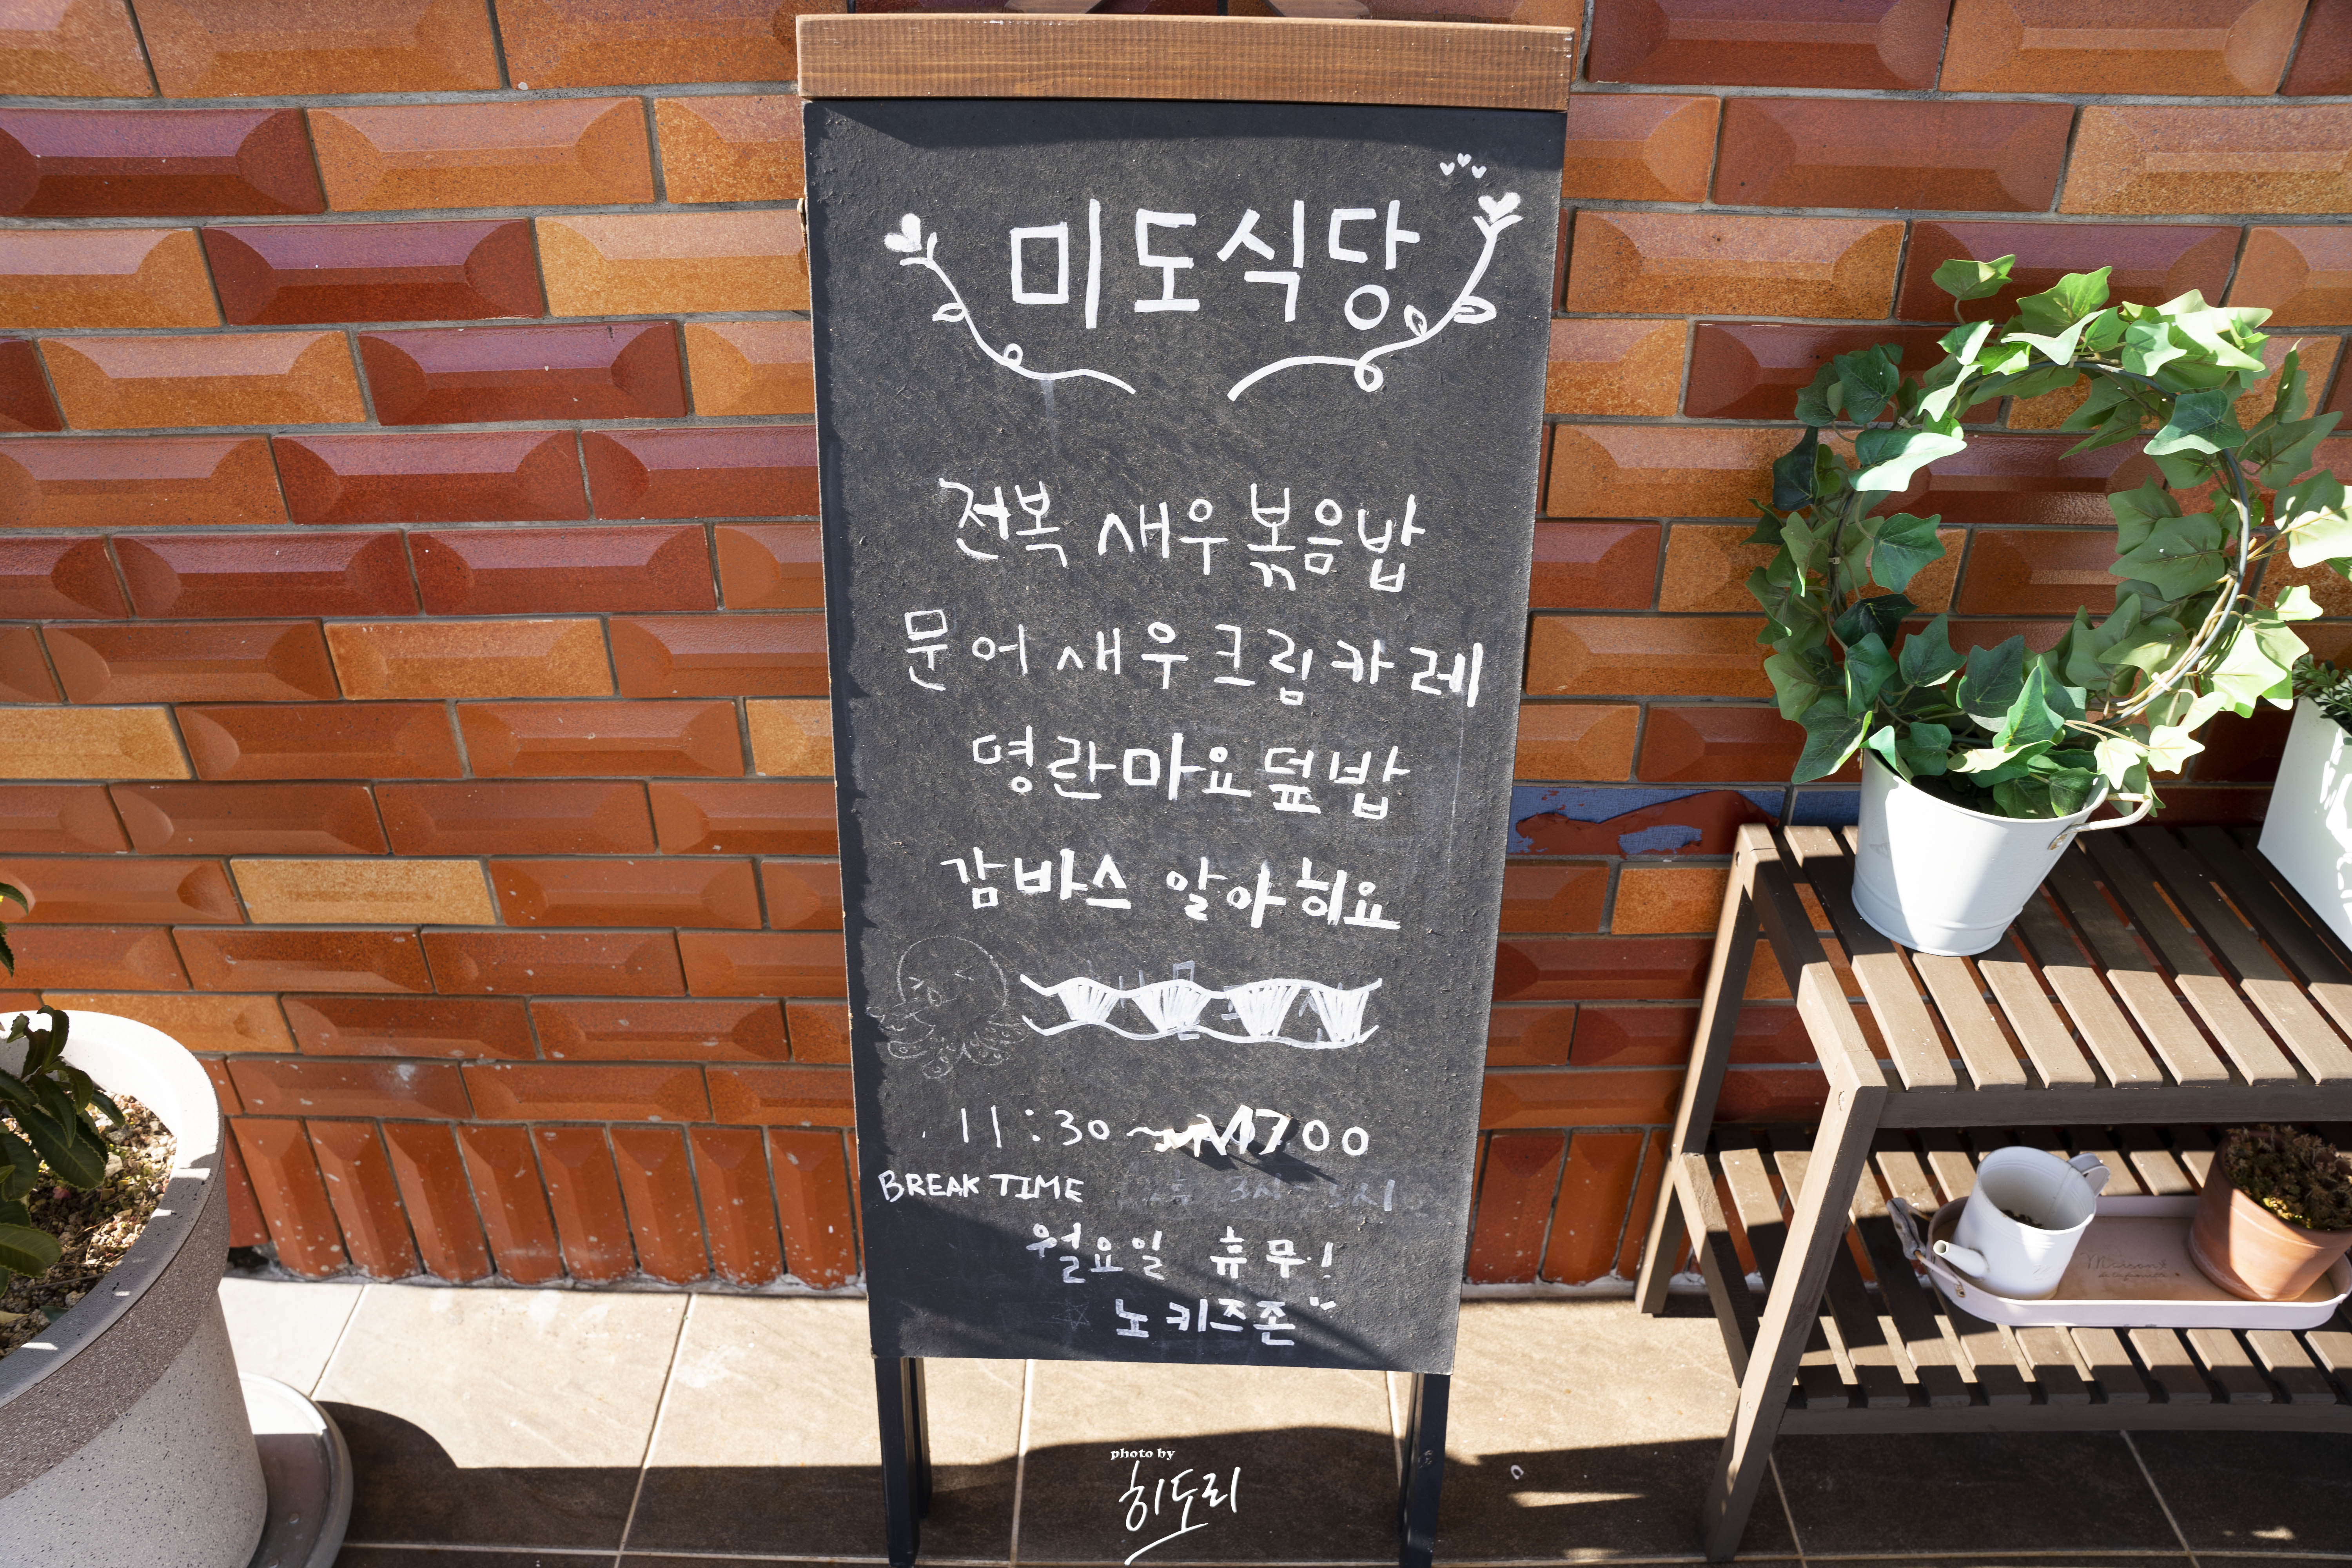 미도식당
전복 새우볶음밥
문어새우크림카레
명란마요덮밥
감바스 알아히요
11:30~1700
BREAK TIME
월요일 휴무!
노키즈존
photo by
히도리